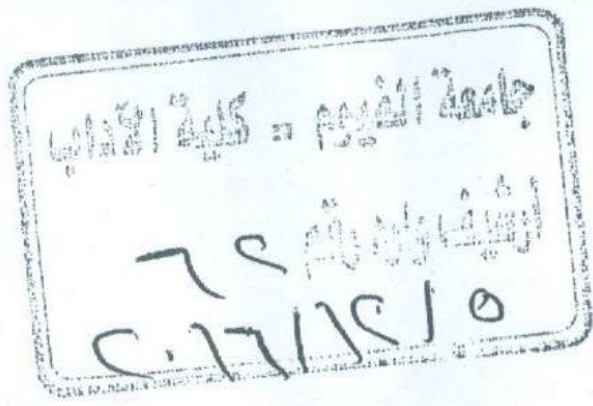 جامعة الفيوم - كلية الآداب
ارشيف وارد رقم ٦٢
٢٠١٦/١٢/٥